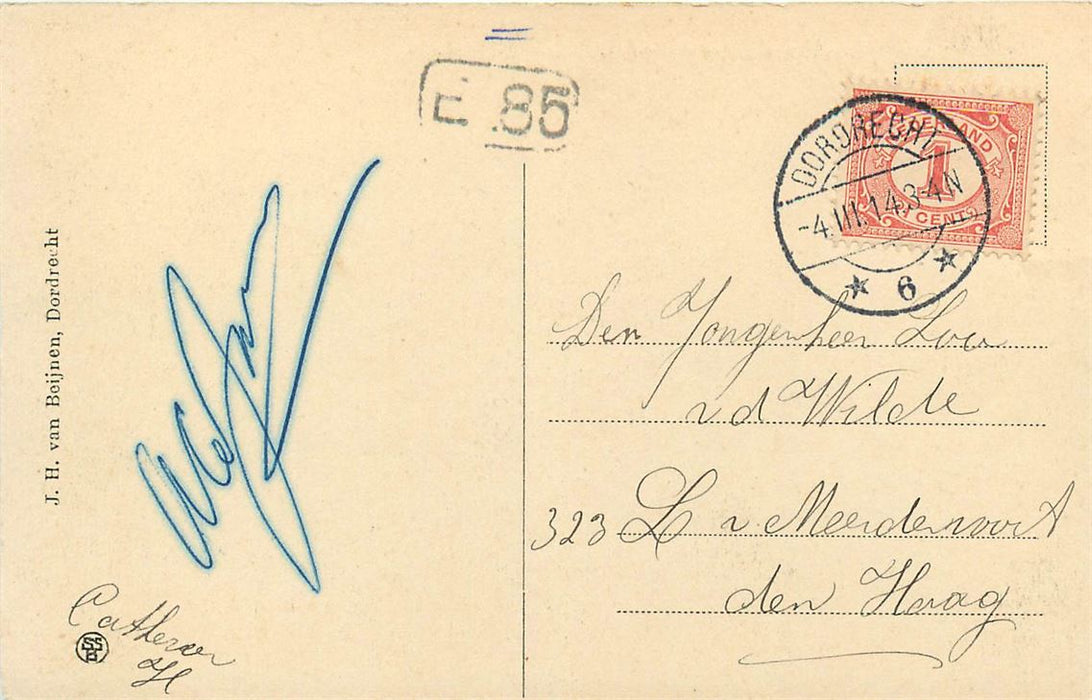 E 85
NEDERLAND
1
CENT
DORDRECHT
-4.III.14.3-4N
6
J. H. van Beijnen, Dordrecht
Den Jongenheer Lou
v d Wilde
323 L v Meerdervoort
den Haag
SSB